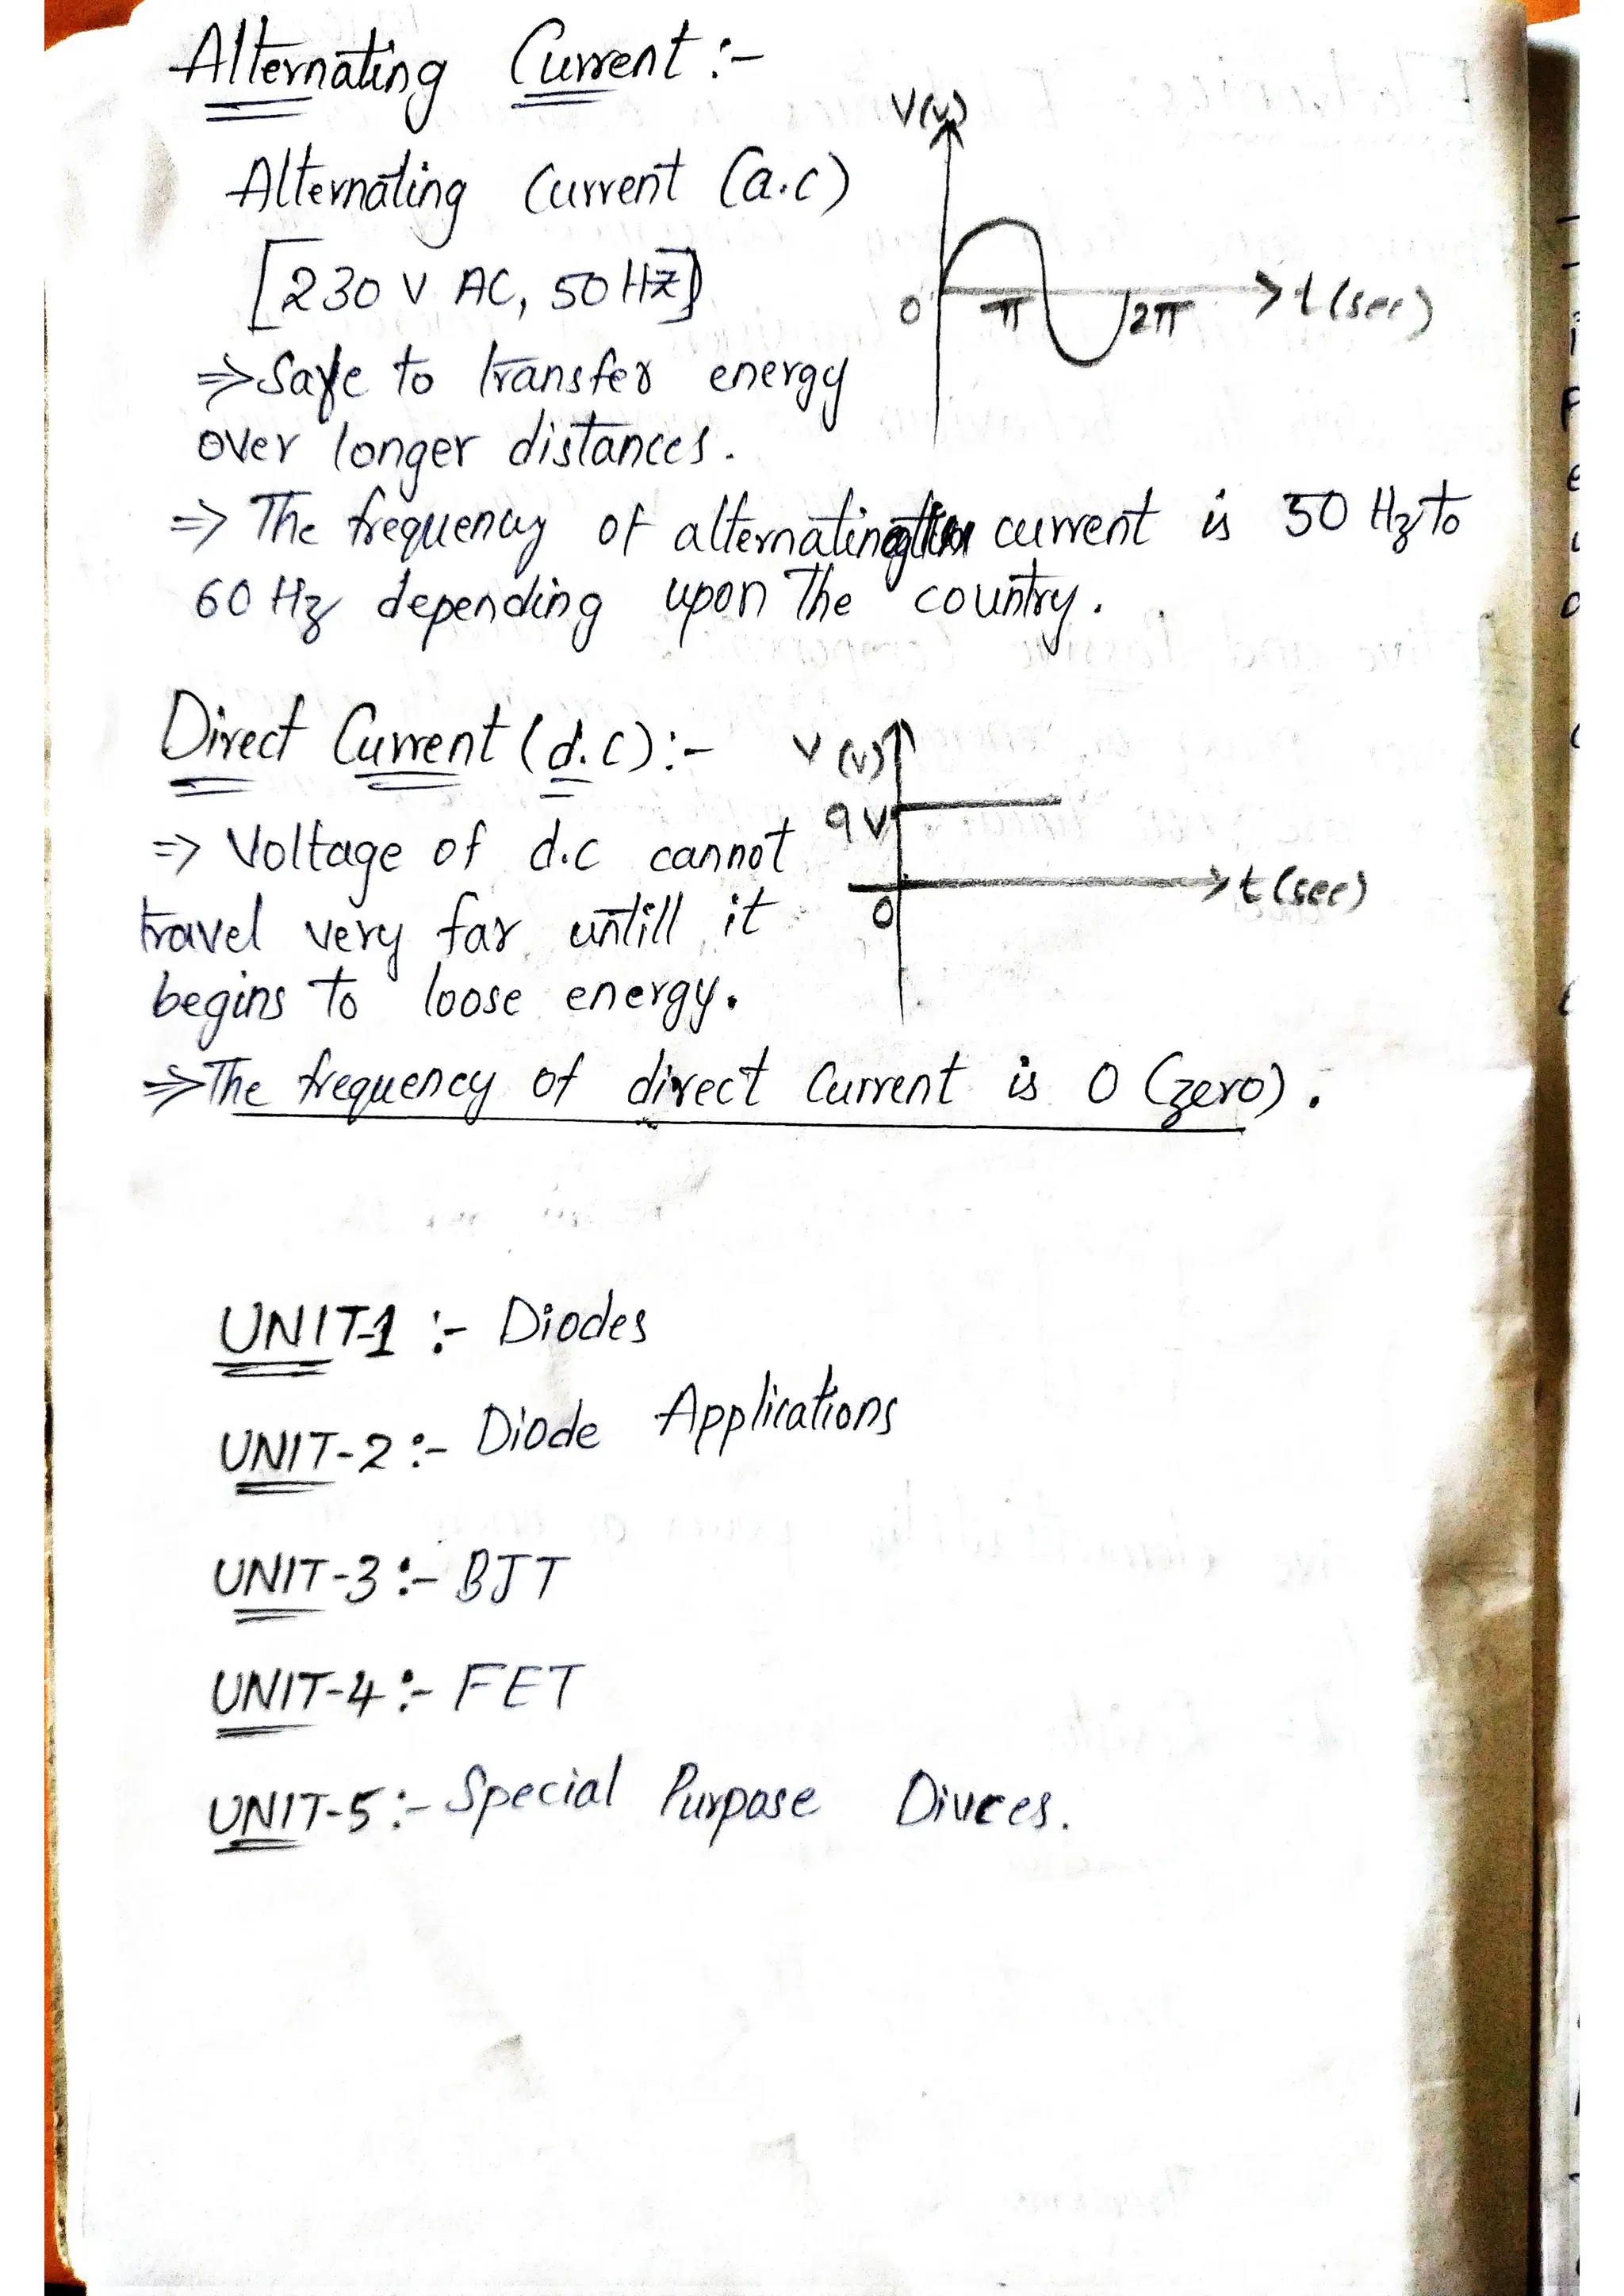 Alternating Current :-
V(v)
Alternating Current (a.c)
[230 V AC, 50 Hz]
0 π 2π t(sec)
⇒ Safe to transfer energy
over longer distances.
⇒ The frequency of alternating current is 50 Hz to
60 Hz depending upon the country.
Direct Current (d.c) :-
V (v)
9V
⇒ Voltage of d.c cannot
t(sec)
0
travel very far untill it
begins to loose energy.
⇒ The frequency of direct Current is 0 (zero).
UNIT-1 :- Diodes
UNIT-2 :- Diode Applications
UNIT-3 :- BJT
UNIT-4 :- FET
UNIT-5 :- Special Purpose Divces.